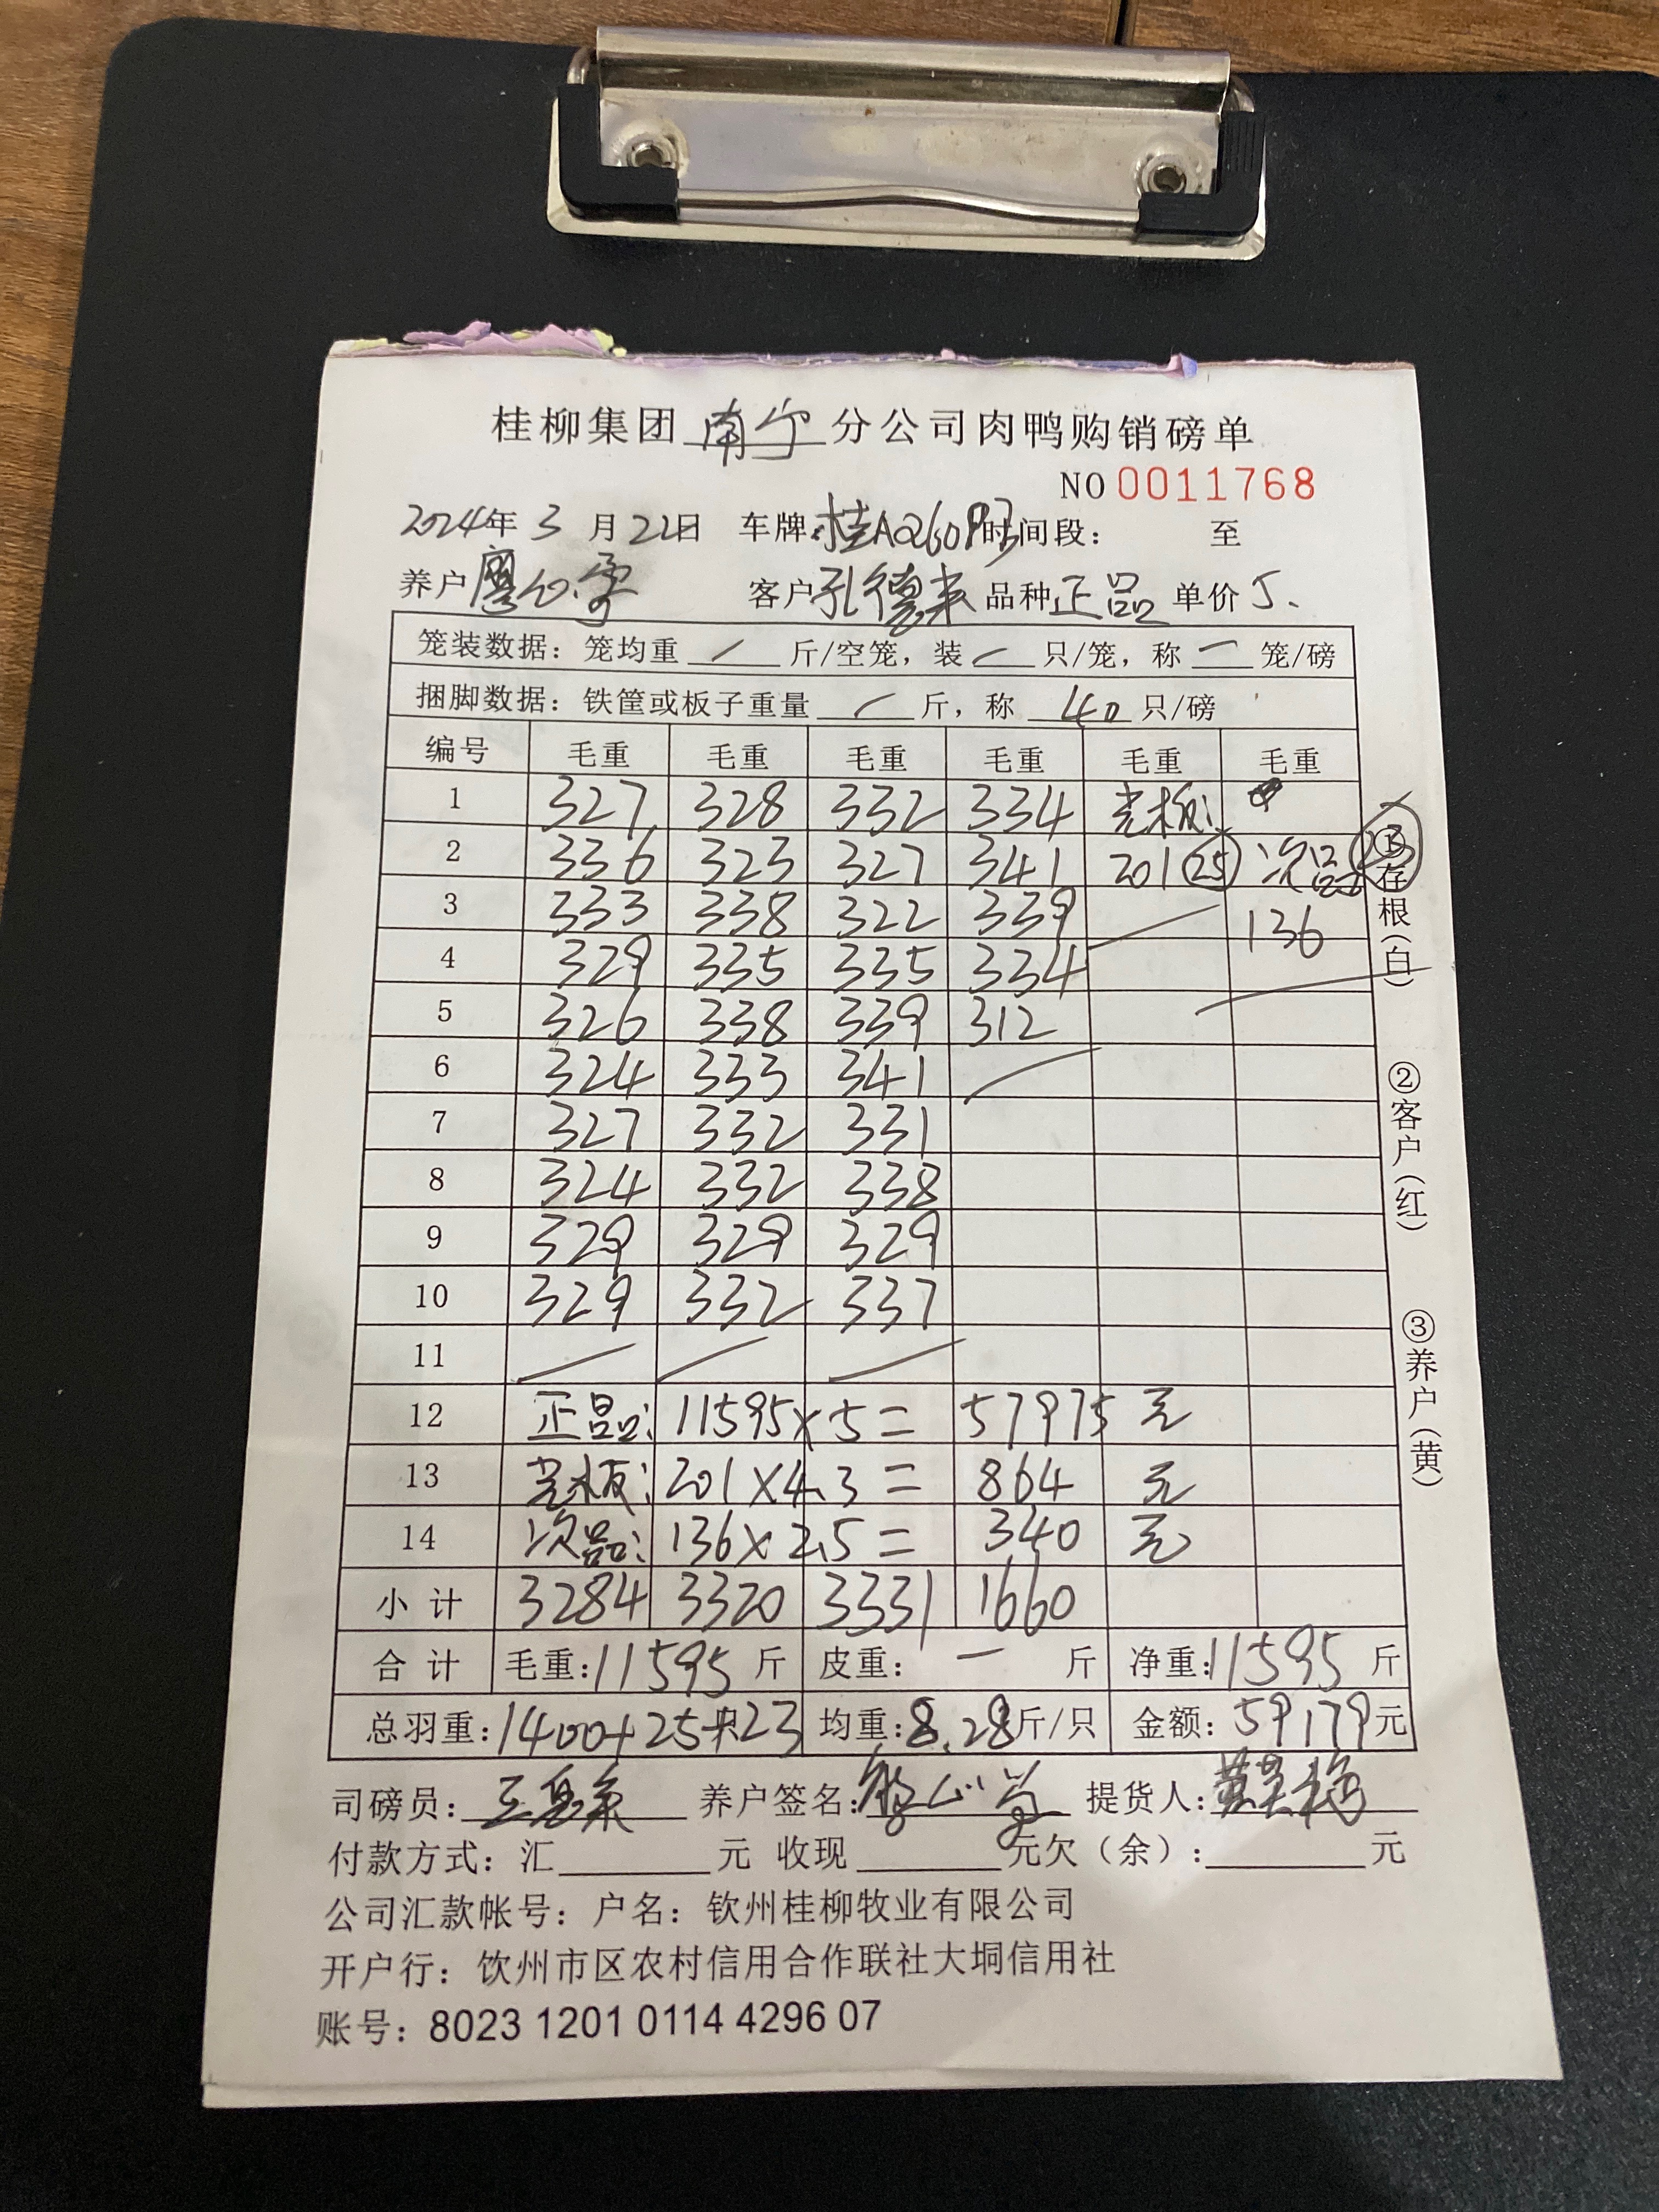 桂柳集团 南宁 分公司肉鸭购销磅单
NO 0011768
2024年 3 月 22日 车牌:桂AQ609 时间段: 至
养户 廖 客户 孔德来 品种 正品 单价 5.
笼装数据:笼均重 / 斤/空笼,装 / 只/笼,称 一 笼/磅
捆脚数据:铁筐或板子重量 / 斤,称 40 只/磅
编号 毛重 毛重 毛重 毛重 毛重 毛重
1 327 328 332 334 光板:
2 336 323 327 341 201 25 次品 23
3 333 338 322 339 136
4 329 335 335 334
5 326 338 339 312
6 324 333 341
7 327 332 331
8 324 332 338
9 329 329 329
10 329 332 337
11
12 正品: 11595 × 5 = 57975 元
13 光板: 201 × 4.3 = 864 元
14 次品: 136 × 2.5 = 340 元
小 计 3284 3320 3331 1660
合 计 毛重:11595 斤 皮重: 一 斤 净重:11595 斤
总羽重:1400+25+23 均重:8.28斤/只 金额:59179元
司磅员: 养户签名: 提货人:
付款方式:汇 元 收现 元欠(余): 元
公司汇款帐号:户名:钦州桂柳牧业有限公司
开户行:饮州市区农村信用合作联社大垌信用社
账号:8023 1201 0114 4296 07
①存根(白)
②客户(红)
③养户(黄)